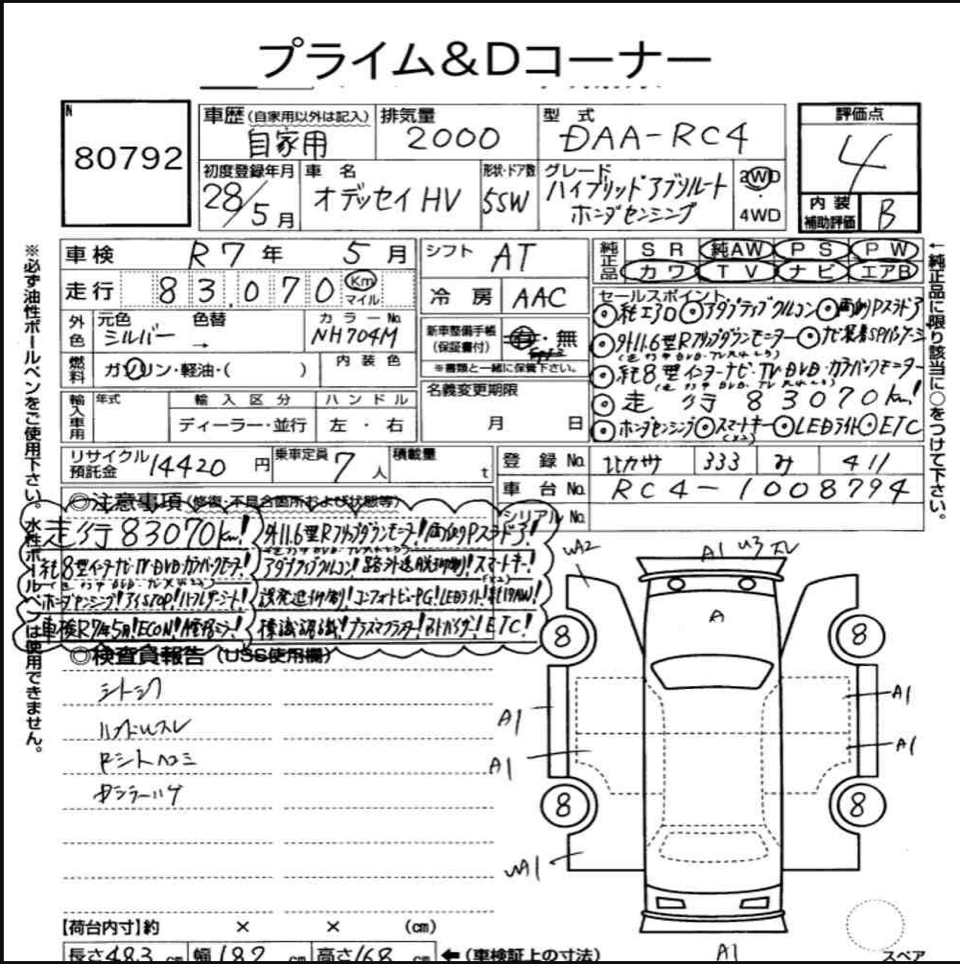 プライム&Dコーナー
N
80792
車歴(自家用以外は記入)
自家用
排気量
2000
型式
DAA-RC4
評価点
4
内装
補助評価
B
初度登録年月
28/5月
車名
オデッセイHV
形状・ドア数
5SW
グレード
ハイブリッドアブソルート
ホンダセンシング
2WD
4WD
車検 R7年 5月
走行 83,070 Km
マイル
シフト AT
冷房 AAC
純正品
SR 純AW PS PW
カワ TV ナビ エアB
外色
元色 色替
シルバー →
カラーNo.
NH704M
燃料
ガソリン・軽油・( )
内装色
新車整備手帳
(保証書付)
有・無
※書類と一緒に保管下さい。
輸入車用
年式
輸入区分
ハンドル
ディーラー・並行
左・右
名義変更期限
月 日
セールスポイント
◎純エアロ◎アダプティブクルコン◎両側Pスラドア
◎外11.6型Rフリップダウンモニター
◎純8型インターナビ・TV・DVD・カラーバックモニター
◎走行83070km!
◎ホンダセンシング◎スマートキー◎LEDライト◎ETC
(×2)
リサイクル
預託金
14420円
乗車定員
7人
積載量
t
登録No. 333 み 411
車台No. RC4-1008794
シリアルNo.
◎注意事項(修復・不具合箇所および状態等)
走行83070km! 外11.6型Rフリップダウンモニター!両側Pスラドア!
純8型インターナビ・TV・DVD・カラーバックモニター! アダプティブクルコン!路外逸脱抑制!スマートキー!
(×2)
ホンダセンシング!アイSTOP!ハーフレザーシート! 誤発進抑制!コンフォートビューPG!LEDライト!純17AW!
車検R7年5月!ECON! 標識認識!プラズマクラスター!ETC!
◎検査員報告(USS使用欄)
シートシワ
ハンドルスレ
←純正品に限り該当に○をつけて下さい。
※必ず油性ボールペンをご使用下さい。水性ボールペンは使用できません。
A1 U3 スレ
A
8
8
A1
A1
A1
A1
8
8
A1
【荷台内寸】約 × × (cm)
長さ483cm 幅182cm 高さ168cm ←(車検証上の寸法)
スペア